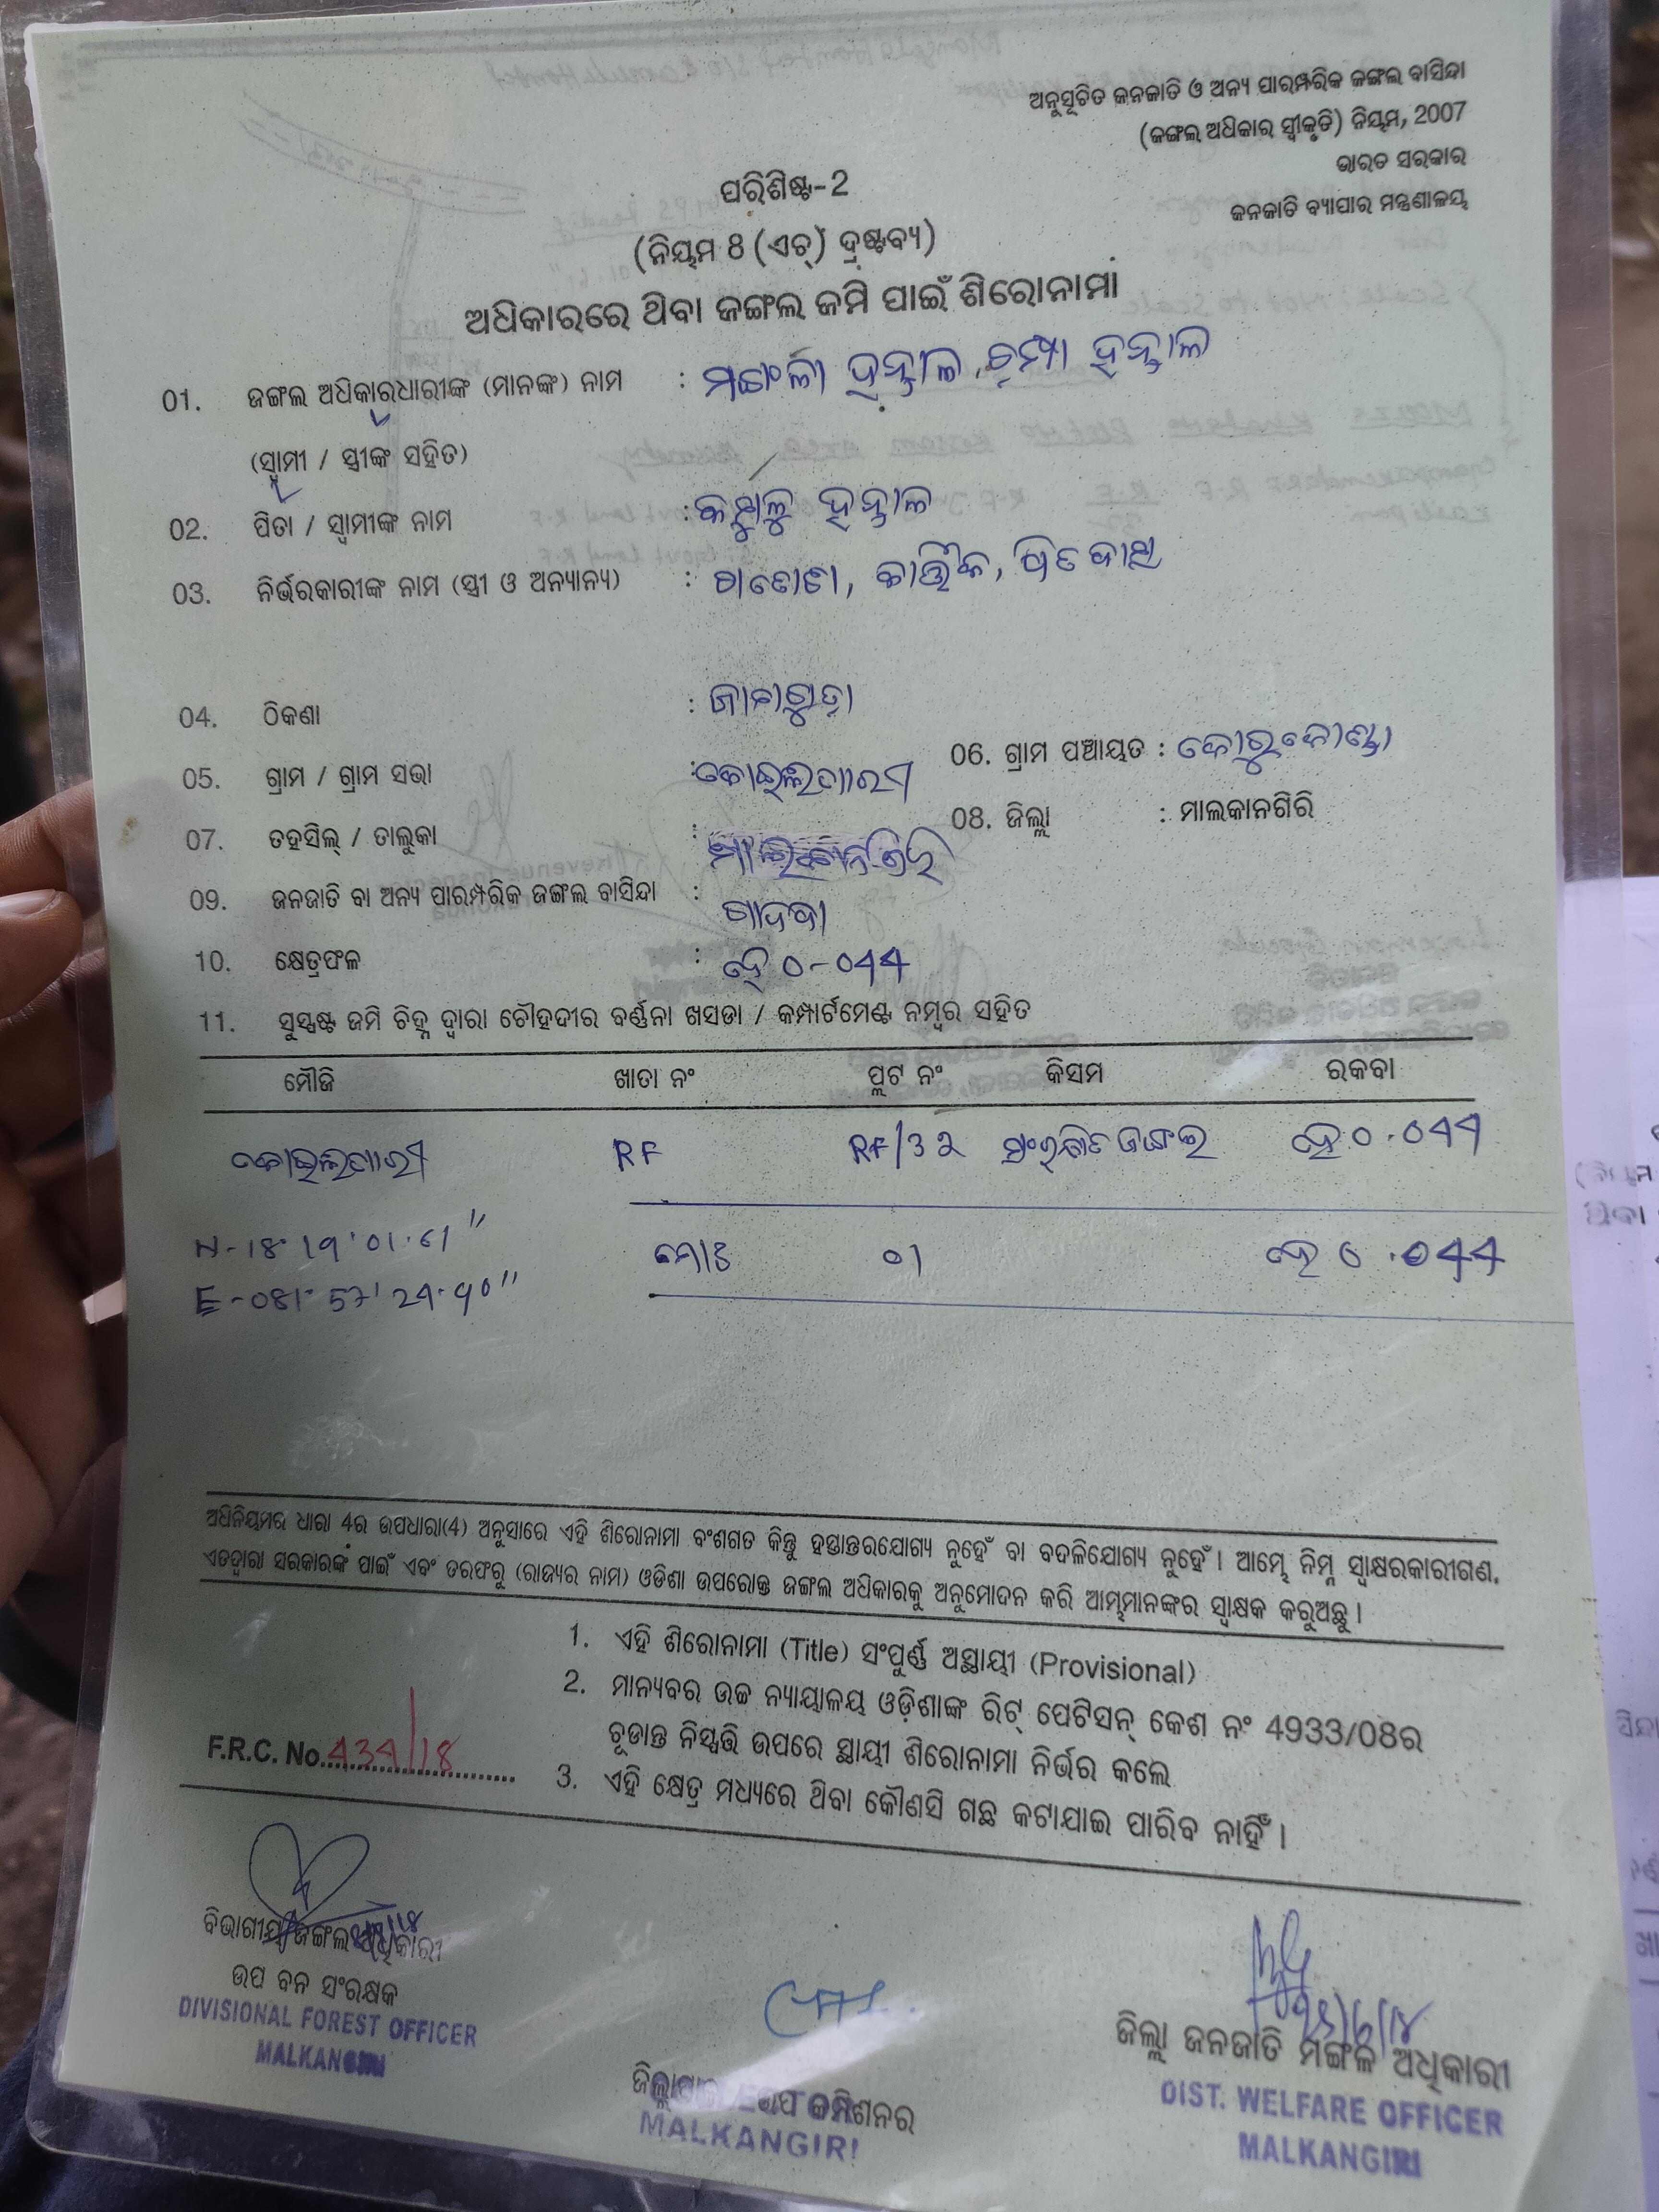 ଅନୁସୂଚିତ ଜନଜାତି ଓ ଅନ୍ୟ ପାରମ୍ପରିକ ଜଙ୍ଗଲ ବାସିନ୍ଦା
(ଜଙ୍ଗଲ ଅଧିକାର ସ୍ୱୀକୃତି) ନିୟମ, 2007
ଭାରତ ସରକାର
ଜନଜାତି ବ୍ୟାପାର ମନ୍ତ୍ରଣାଳୟ
ପରିଶିଷ୍ଟ-2
(ନିୟମ 8 (ଏଚ୍) ଦ୍ରଷ୍ଟବ୍ୟ)
ଅଧିକାରରେ ଥିବା ଜଙ୍ଗଲ ଜମି ପାଇଁ ଶିରୋନାମା
01. ଜଙ୍ଗଲ ଅଧିକାରଧାରୀଙ୍କ (ମାନଙ୍କ) ନାମ : ହନ୍ତାଳ, ଚମ୍ପା ହନ୍ତାଳ
(ସ୍ୱାମୀ / ସ୍ତ୍ରୀଙ୍କ ସହିତ)
02. ପିତା / ସ୍ୱାମୀଙ୍କ ନାମ : ହନ୍ତାଳ
03. ନିର୍ଭରକାରୀଙ୍କ ନାମ (ସ୍ତ୍ରୀ ଓ ଅନ୍ୟାନ୍ୟ) : କାର୍ତ୍ତିକ,
04. ଠିକଣା :
05. ଗ୍ରାମ / ଗ୍ରାମ ସଭା :
06. ଗ୍ରାମ ପଞ୍ଚାୟତ : କୋରୁକୋଣ୍ଡା
07. ତହସିଲ୍ / ତାଲୁକା : ମାଲକାନଗିରି
08. ଜିଲ୍ଲା : ମାଲକାନଗିରି
09. ଜନଜାତି ବା ଅନ୍ୟ ପାରମ୍ପରିକ ଜଙ୍ଗଲ ବାସିନ୍ଦା : ଗାଦବା
10. କ୍ଷେତ୍ରଫଳ : ହେ 0-044
11. ସୁସ୍ପଷ୍ଟ ଜମି ଚିହ୍ନ ଦ୍ୱାରା ଚୌହଦୀର ବର୍ଣ୍ଣନା ଖସଡା / କମ୍ପାର୍ଟମେଣ୍ଟ ନମ୍ବର ସହିତ
ମୌଜି ଖାତା ନଂ ପ୍ଲଟ ନଂ କିସମ ରକବା
RF RF/32 ସଂରକ୍ଷିତ ଜଙ୍ଗଲ ହେ 0.044
N-18° 19' 01.61"
ମୋଃ 01 ହେ 0.044
E-081° 57' 24.90"
ଅଧିନିୟମର ଧାରା 4ର ଉପଧାରା(4) ଅନୁସାରେ ଏହି ଶିରୋନାମା ବଂଶଗତ କିନ୍ତୁ ହସ୍ତାନ୍ତରଯୋଗ୍ୟ ନୁହେଁ ବା ବଦଳିଯୋଗ୍ୟ ନୁହେଁ। ଆମ୍ଭେ ନିମ୍ନ ସ୍ୱାକ୍ଷରକାରୀଗଣ,
ଏତଦ୍ୱାରା ସରକାରଙ୍କ ପାଇଁ ଏବଂ ତରଫରୁ (ରାଜ୍ୟର ନାମ) ଓଡିଶା ଉପରୋକ୍ତ ଜଙ୍ଗଲ ଅଧିକାରକୁ ଅନୁମୋଦନ କରି ଆମ୍ଭମାନଙ୍କର ସ୍ୱାକ୍ଷକ କରୁଅଛୁ।
1. ଏହି ଶିରୋନାମା (Title) ସଂପୂର୍ଣ୍ଣ ଅସ୍ଥାୟୀ (Provisional)
2. ମାନ୍ୟବର ଉଚ୍ଚ ନ୍ୟାୟାଳୟ ଓଡ଼ିଶାଙ୍କ ରିଟ୍ ପେଟିସନ୍ କେଶ ନଂ 4933/08ର
ଚୂଡାନ୍ତ ନିସ୍ପତ୍ତି ଉପରେ ସ୍ଥାୟୀ ଶିରୋନାମା ନିର୍ଭର କଲେ
F.R.C. No. 434/18
3. ଏହି କ୍ଷେତ୍ର ମଧ୍ୟରେ ଥିବା କୌଣସି ଗଛ କଟାଯାଇ ପାରିବ ନାହିଁ।
ବିଭାଗୀୟ ଜଙ୍ଗଲ ଅଧିକାରୀ
ଉପ ବନ ସଂରକ୍ଷକ
DIVISIONAL FOREST OFFICER
MALKANGIRI
ଉପ କମିଶନର
MALKANGIRI
ଜିଲ୍ଲା ଜନଜାତି ମଙ୍ଗଳ ଅଧିକାରୀ
DIST. WELFARE OFFICER
MALKANGIRI